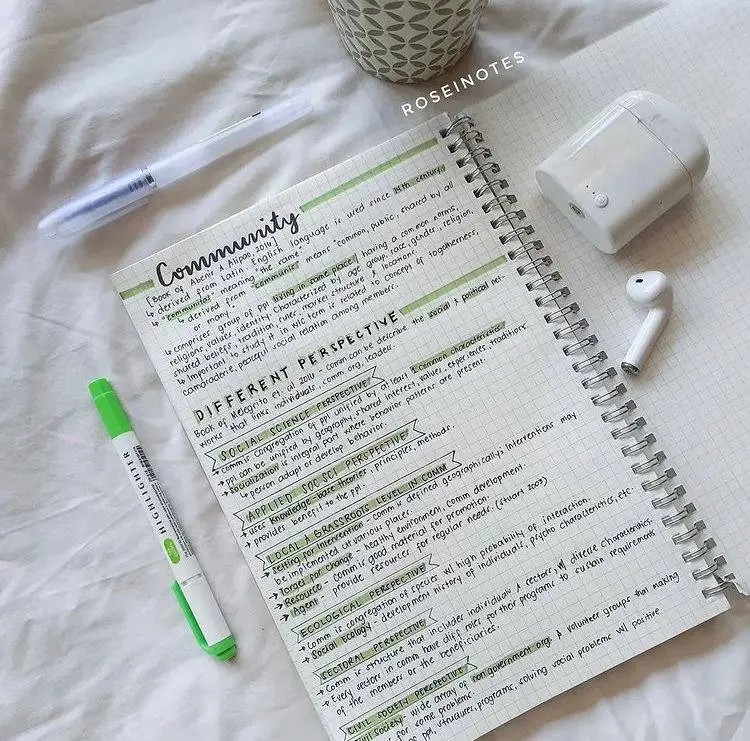 ROSEINOTES
Community
[Book of Abenir & Alipao, 2016]
↳ derived from Latin. English language is used since 14th century
↳ "communitas" meaning "the same"
↳ derived from "communis" means "common, public, shared by all
or many."
↳ comprises group of ppl living in same place / having a common norms,
religions, values, identity. Characterized by age group, race, gender, religion,
shared beliefs, tradition, rules, market structure & locations.
↳ Important to study it in WIC term is related to concept of togetherness,
camaraderie, peaceful social relation among members.
DIFFERENT PERSPECTIVE
Book of Melegrito et al 2016 - comm can be describe the social & political net-
works that links individuals, comm org, leaders.
SOCIAL SCIENCE PERSPECTIVE
→ comm is congregation of ppl unified by at least 1 common characteristics
ppl can be unified by geography, shared interest, values, experiences, traditions.
→ Socialization is integral part where behavior patterns are present.
↳ person adapt or develop behavior.
APPLIED SOC SCI PERSPECTIVE
→ uses knowledge-base theories, principles, methods.
→ provides benefit to the ppl.
LOCAL & GRASSROOTS LEVEL IN COMM
→ Setting for intervention - comm is defined geographically; interventions may
be implemented at various places.
→ Target for change - healthy environment, comm development.
→ Resource - comm is good material for promotion.
→ Agent - provide resources for regular needs. (Stuart 2003)
ECOLOGICAL PERSPECTIVE
→ Comm is congregation of species w/ high probability of interaction.
→ Social Ecology - development history of individuals, psycho characteristics, etc.
SECTORAL PERSPECTIVE
→ Comm is structure that includes individuals & sectors, w/ diverse characteristics.
→ Every sectors in comm have diff roles for their programs to sustain requirements
of the members or the beneficiaries.
CIVIL SOCIETY PERSPECTIVE
Civil Society: wide array of non government org. & volunteer groups that making
for some problems.
of ppl, structures, programs, solving social problems w/ positive
HIGHLIGHTER